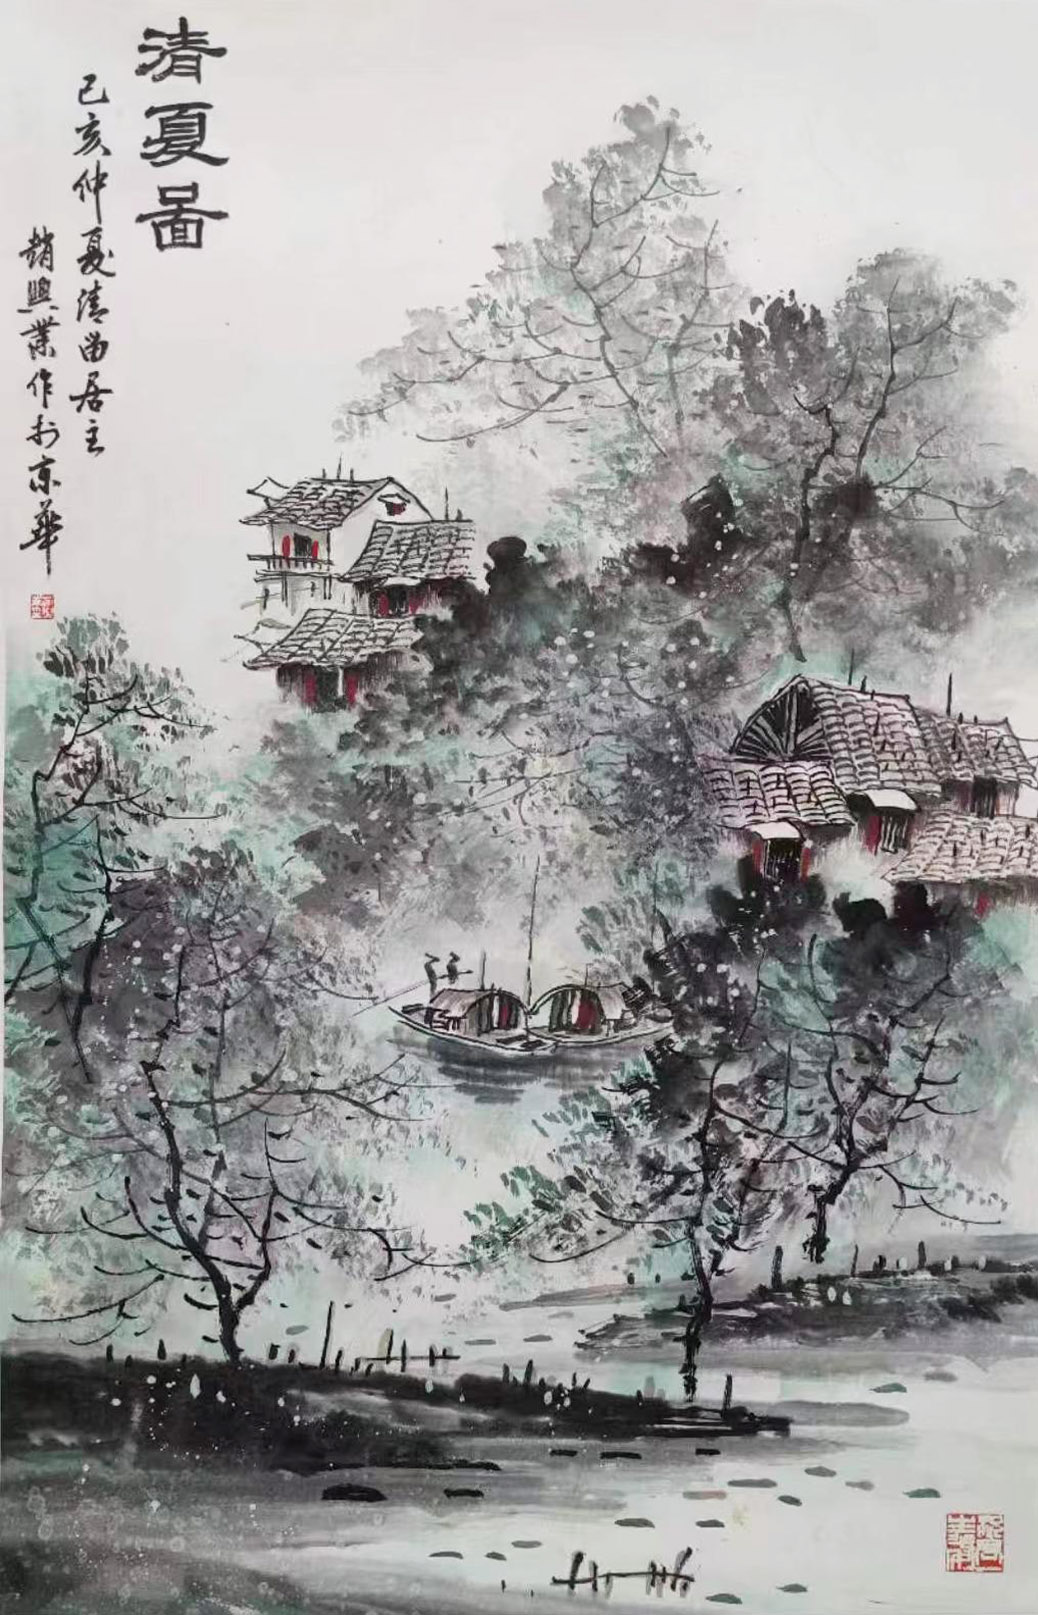 清夏啚
己亥仲夏清曲居主
趙興業作於京華